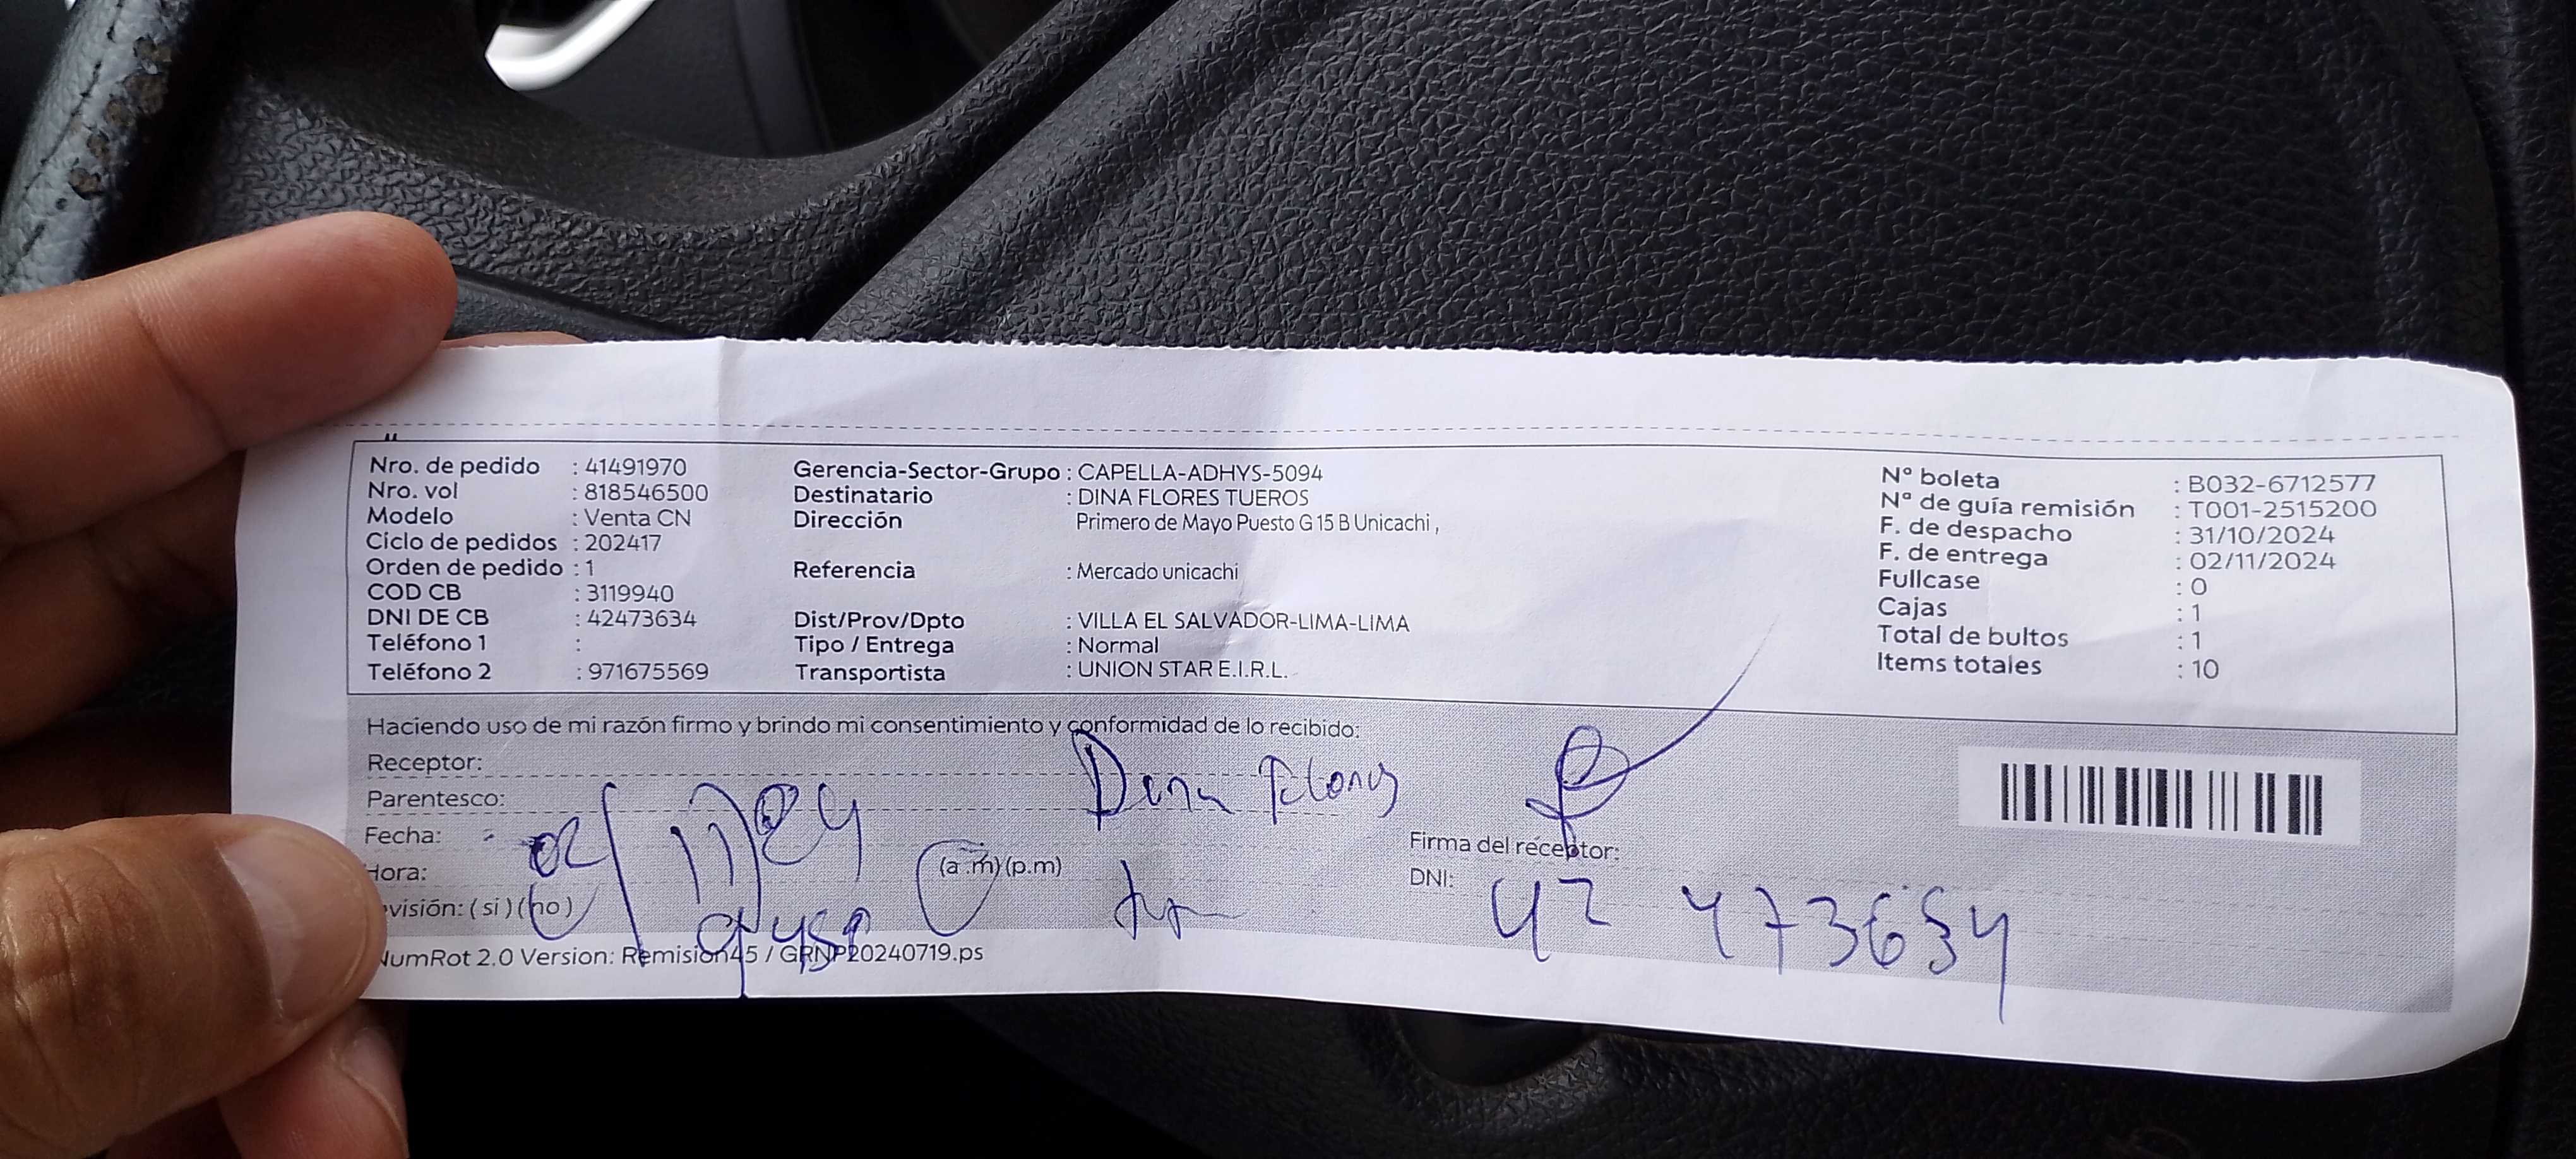 Nro. de pedido : 41491970
Nro. vol : 818546500
Modelo : Venta CN
Ciclo de pedidos : 202417
Orden de pedido : 1
COD CB : 3119940
DNI DE CB : 42473634
Teléfono 1 :
Teléfono 2 : 971675569
Gerencia-Sector-Grupo : CAPELLA-ADHYS-5094
Destinatario : DINA FLORES TUEROS
Dirección Primero de Mayo Puesto G 15 B Unicachi ,
Referencia : Mercado unicachi
Dist/Prov/Dpto : VILLA EL SALVADOR-LIMA-LIMA
Tipo / Entrega : Normal
Transportista : UNION STAR E.I.R.L.
Nº boleta : B032-6712577
Nº de guía remisión : T001-2515200
F. de despacho : 31/10/2024
F. de entrega : 02/11/2024
Fullcase : 0
Cajas : 1
Total de bultos : 1
Items totales : 10
Haciendo uso de mi razón firmo y brindo mi consentimiento y conformidad de lo recibido:
Receptor: Dina Flores
Parentesco:
Fecha: 02/11/24
Hora: (a .m) (p.m)
visión: ( si ) ( no )
Firma del receptor:
DNI: 42 473634
NumRot 2.0 Version: Remision45 / GRNP20240719.ps